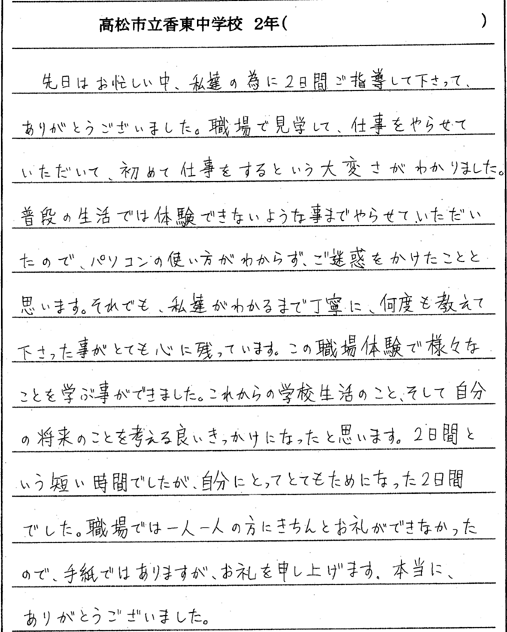 高松市立香東中学校 2年( )
先日はお忙しい中、私達の為に2日間ご指導して下さって、
ありがとうございました。職場で見学して、仕事をやらせて
いただいて、初めて仕事をするという大変さがわかりました。
普段の生活では体験できないような事までやらせていただい
たので、パソコンの使い方がわからず、ご迷惑をかけたことと
思います。それでも、私達がわかるまで丁寧に、何度も教えて
下さった事がとても心に残っています。この職場体験で様々な
ことを学ぶ事ができました。これからの学校生活のこと、そして自分
の将来のことを考える良いきっかけになったと思います。2日間と
いう短い時間でしたが、自分にとってとてもためになった2日間
でした。職場では一人一人の方にきちんとお礼ができなかった
ので、手紙ではありますが、お礼を申し上げます。本当に、
ありがとうございました。